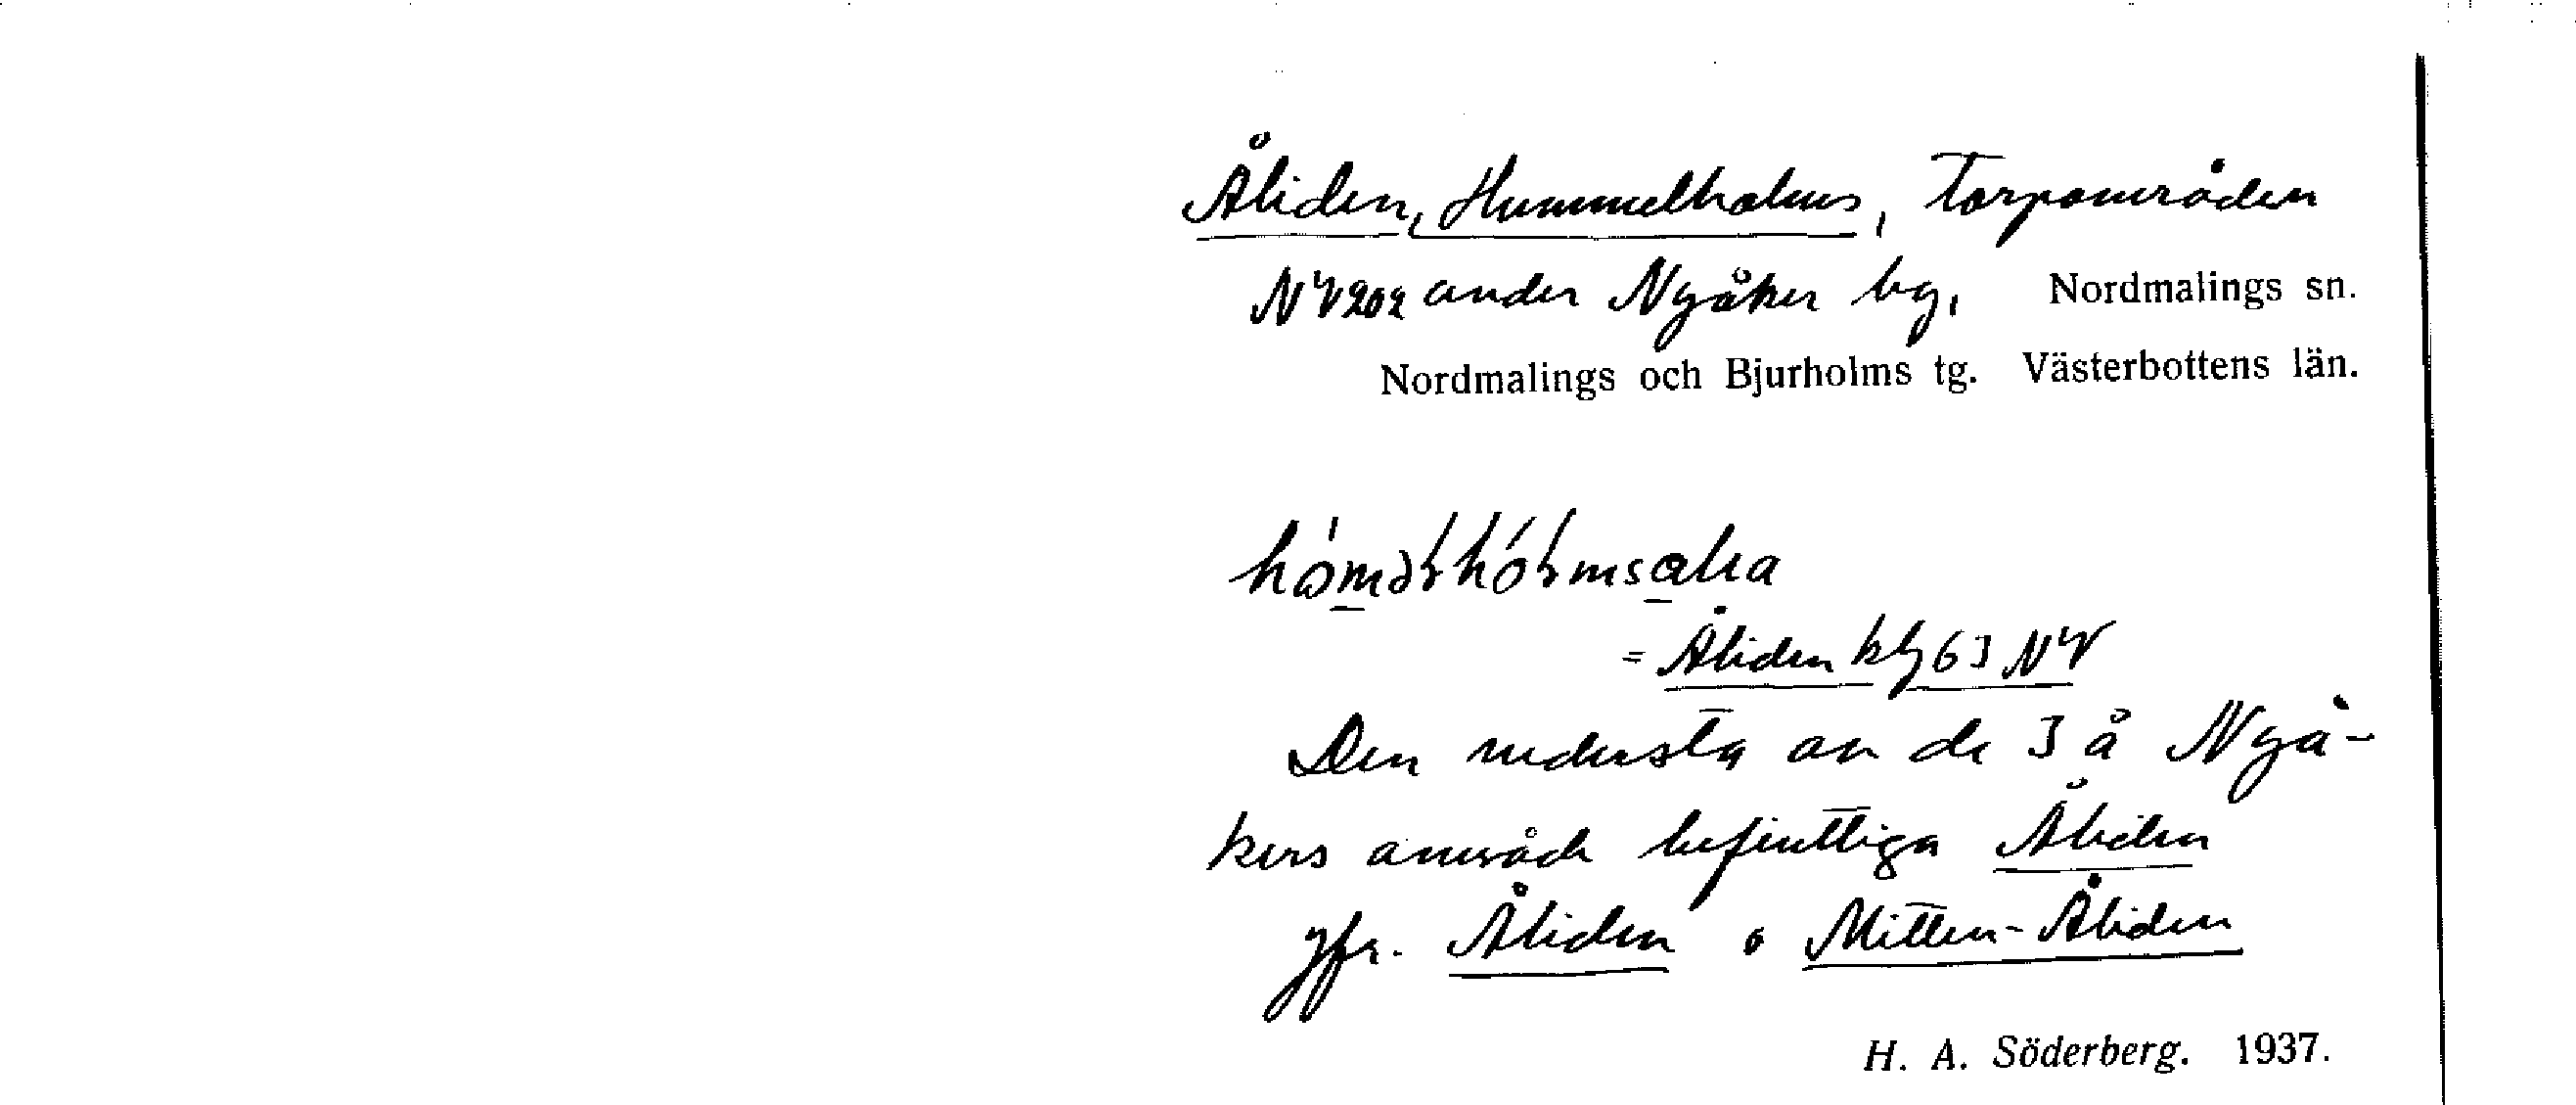 Åliden, Hummelholms, torpområden
NV202 under Nyåker by, Nordmalings sn.
Nordmalings och Bjurholms tg. Västerbottens län.
= Åliden kbl 63 NV
Den nedersta av de 3 å Nyå-
kers område befintliga Åliden
Jfr. Åliden o Mitten-Åliden
H. A. Söderberg. 1937.